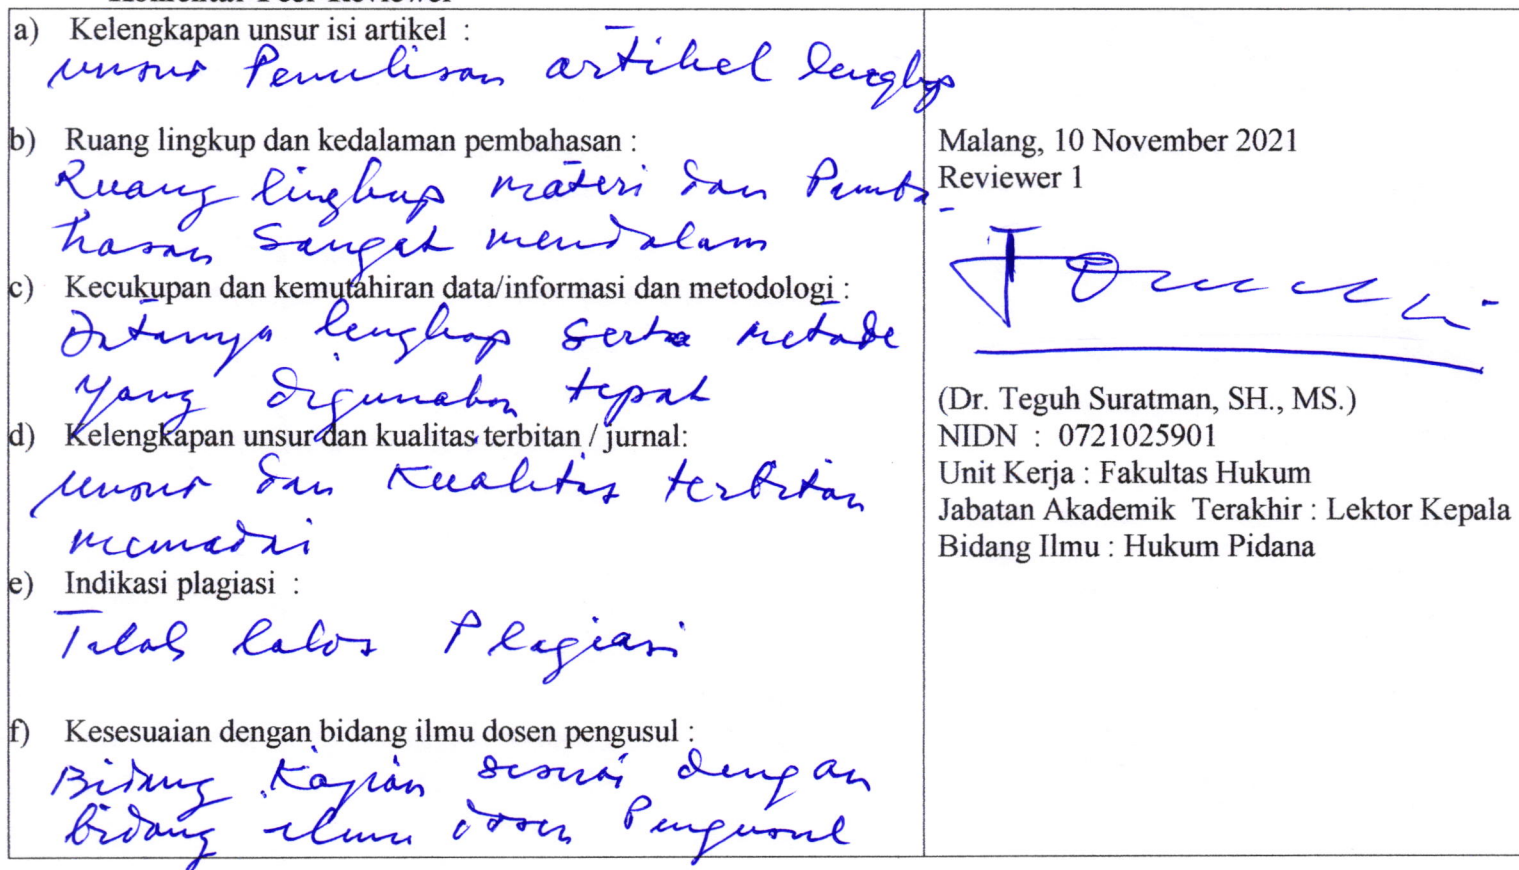 Komentar Peer Reviewer
a) Kelengkapan unsur isi artikel :
unsur Penulisan artikel lengkap
b) Ruang lingkup dan kedalaman pembahasan :
Ruang lingkup materi dan Pemba-
hasan sangat mendalam
c) Kecukupan dan kemutahiran data/informasi dan metodologi :
Datanya lengkap serta metode
yang digunakan tepat
d) Kelengkapan unsur dan kualitas terbitan / jurnal:
unsur dan Kualitas terbitan
memadai
e) Indikasi plagiasi :
Telah lolos Plagiasi
f) Kesesuaian dengan bidang ilmu dosen pengusul :
Bidang Kajian sesuai dengan
bidang ilmu dosen Pengusul
Malang, 10 November 2021
Reviewer 1
(Dr. Teguh Suratman, SH., MS.)
NIDN : 0721025901
Unit Kerja : Fakultas Hukum
Jabatan Akademik Terakhir : Lektor Kepala
Bidang Ilmu : Hukum Pidana